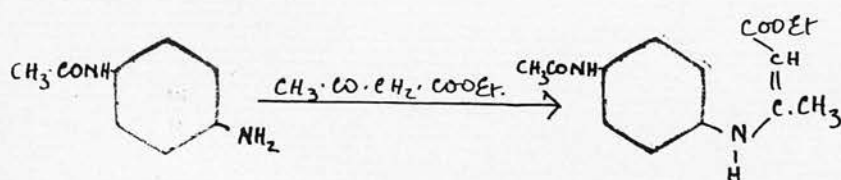 CH3·CONH
NH2
CH3·CO·CH2·COOEt.
CH3CONH
COOEt
CH
C·CH3
N
H